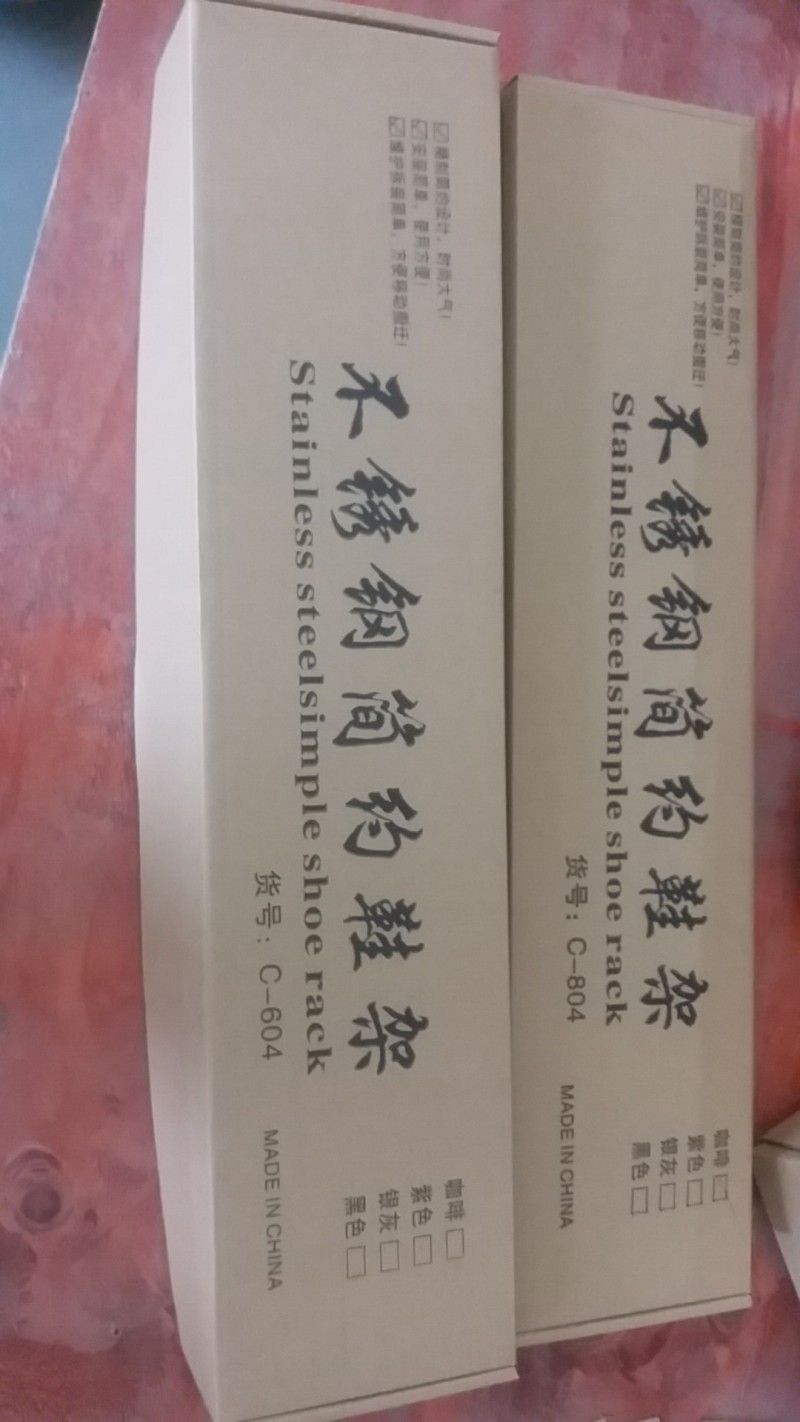 精制简约设计，时尚大气！
安装简单，使用方便！
维护拆装简单，方便移动搬迁！
不锈钢简约鞋架
Stainless steelsimple shoe rack
货号：C-604
MADE IN CHINA
咖啡
紫色
银灰
黑色
安装简单，使用方便！
维护拆装简单，方便移动搬迁！
不锈钢简约鞋架
Stainless steelsimple shoe rack
货号：C-804
MADE IN CHINA
咖啡
紫色
银灰
黑色